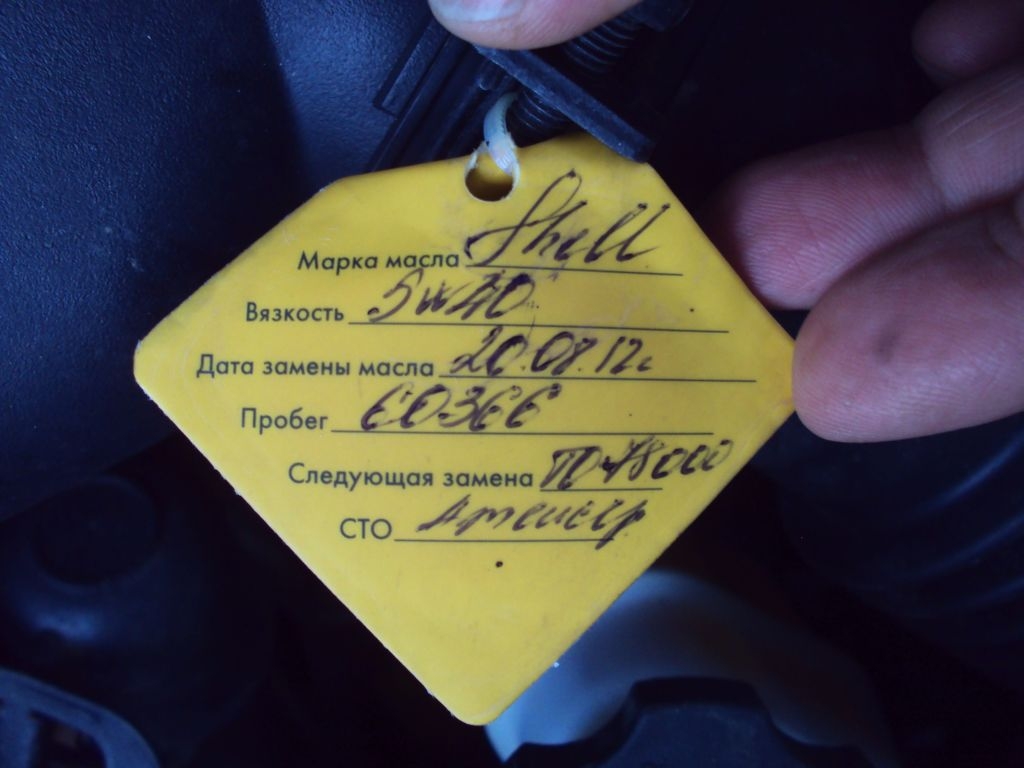 Марка масла Shell
Вязкость 5w40
Дата замены масла 20.08.12г
Пробег 60366
Следующая замена ТО-78000
СТО